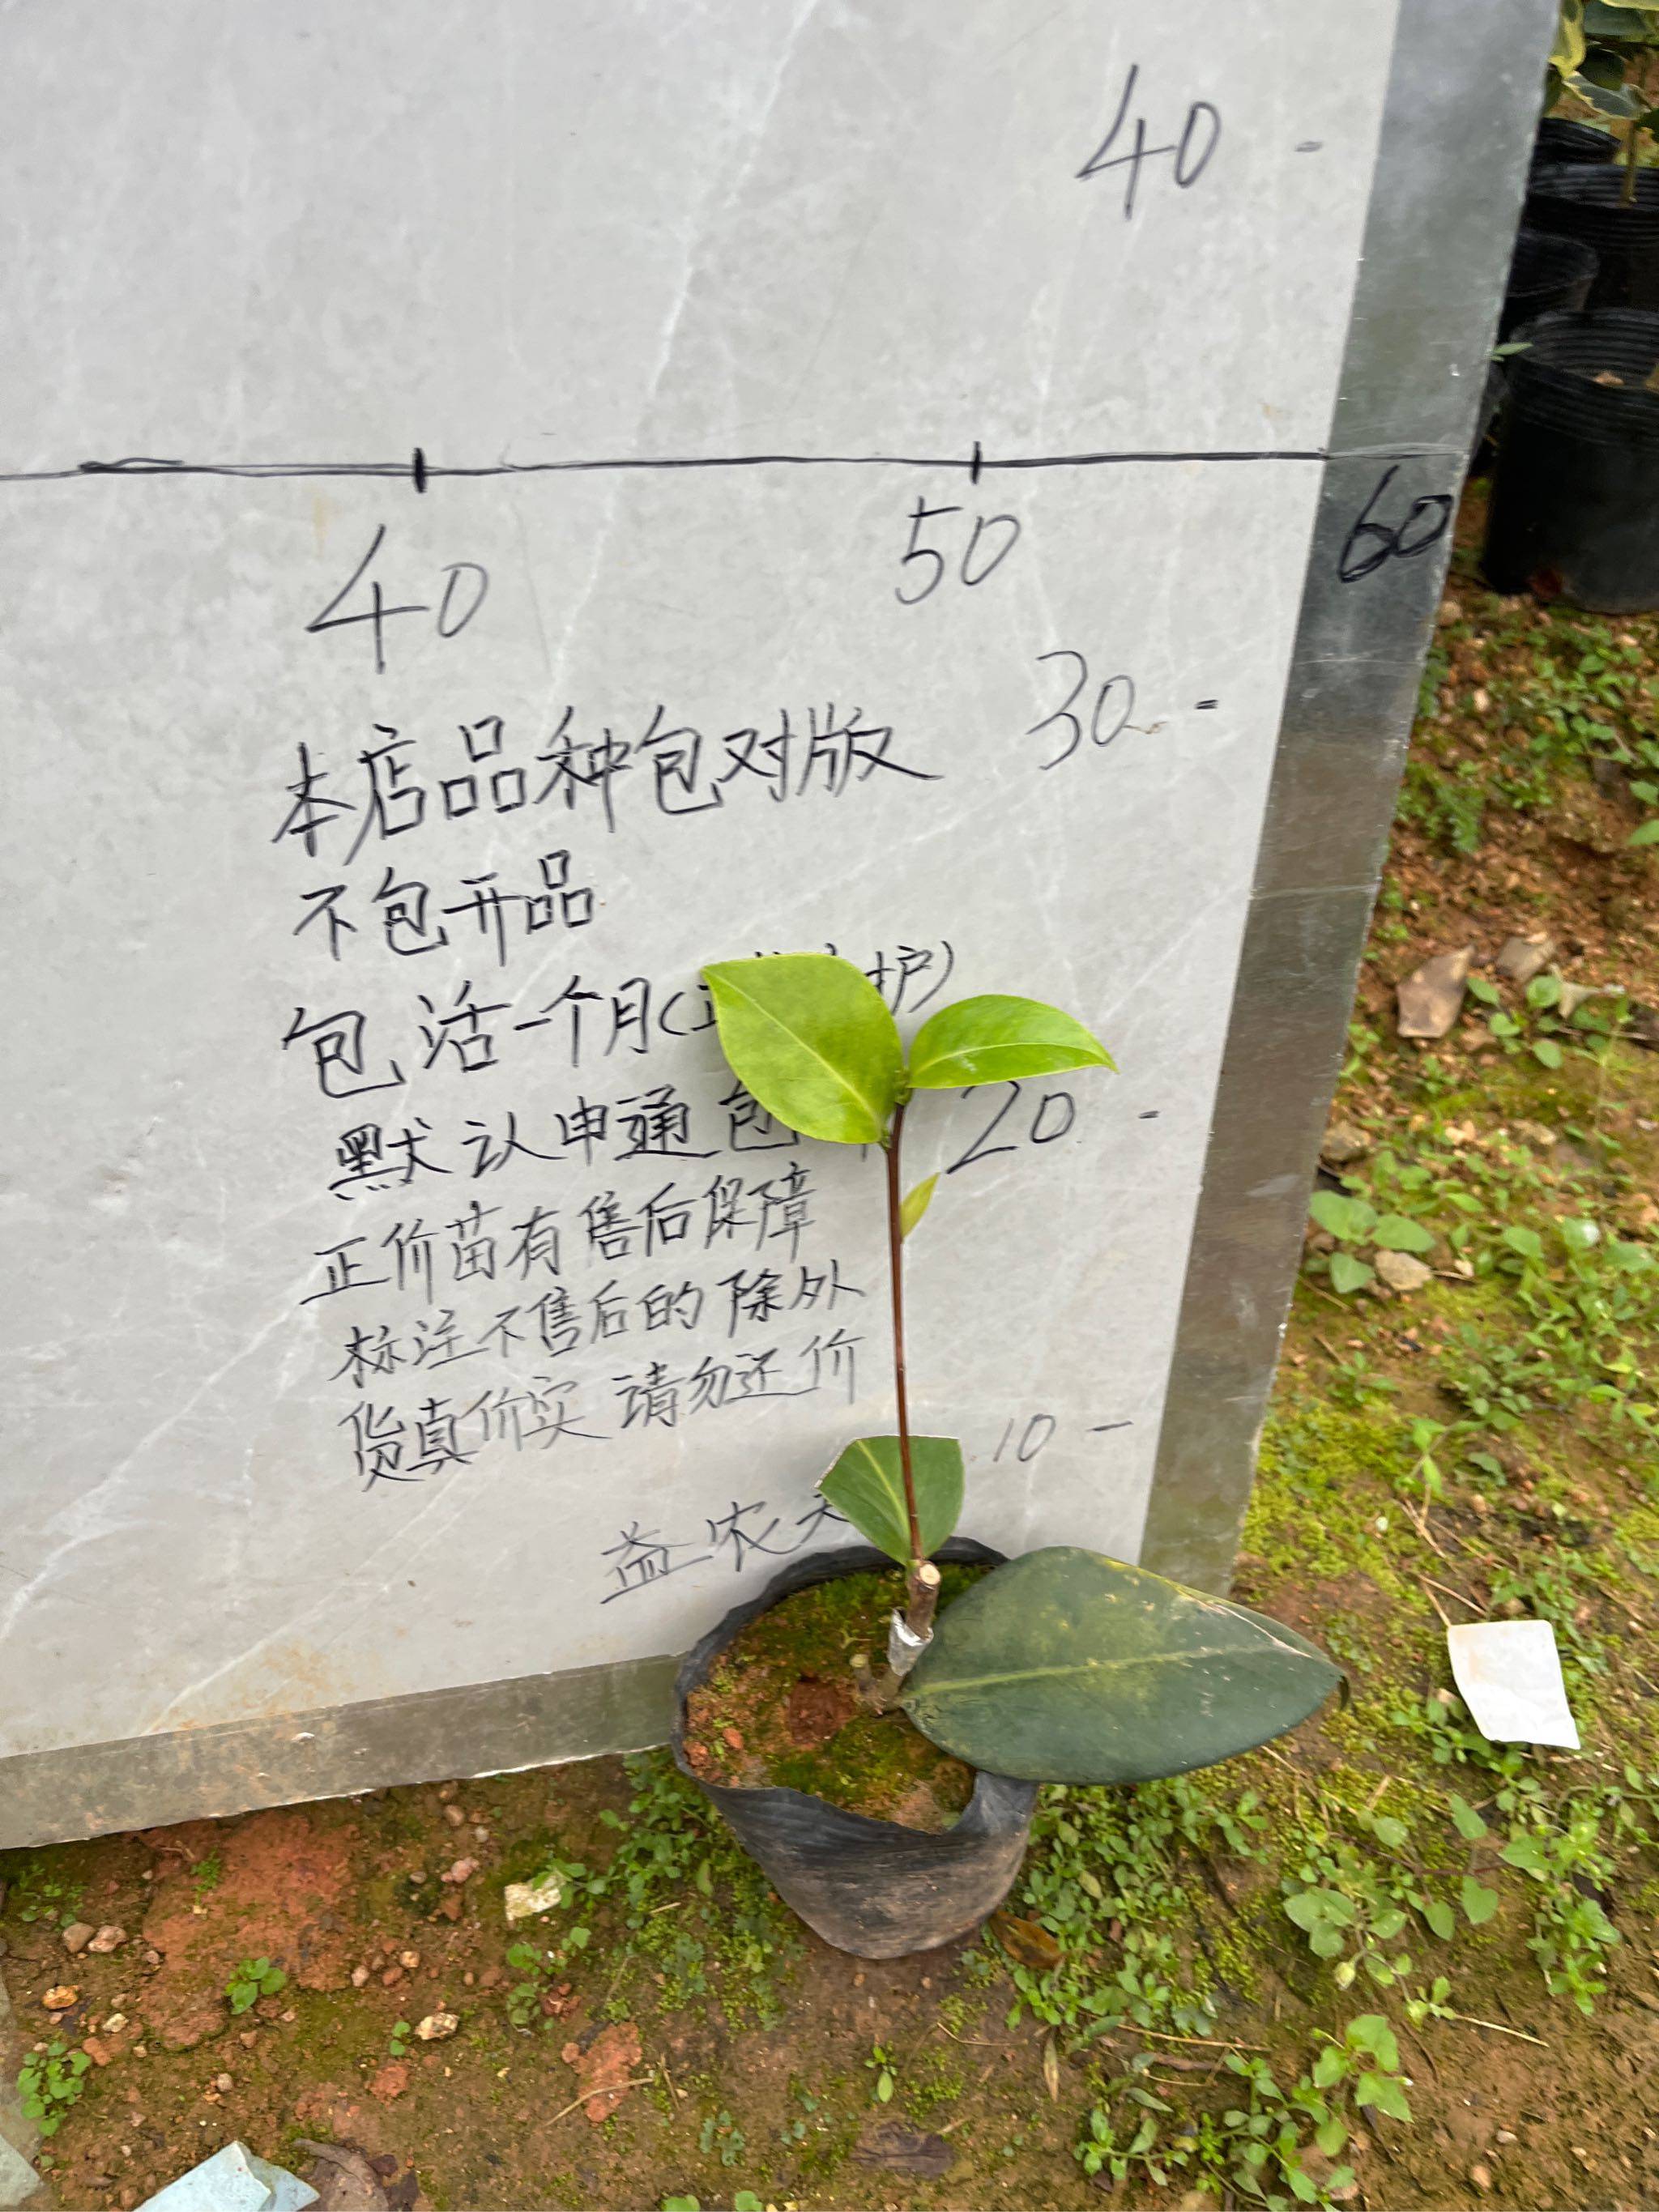 40 -
40 50 60
30 -
本店品种包对版
不包开品
包活一个月( 护)
默认申通包
20 -
正价苗有售后保障
标注不售后的除外
货真价实 请勿还价
10 -
益农